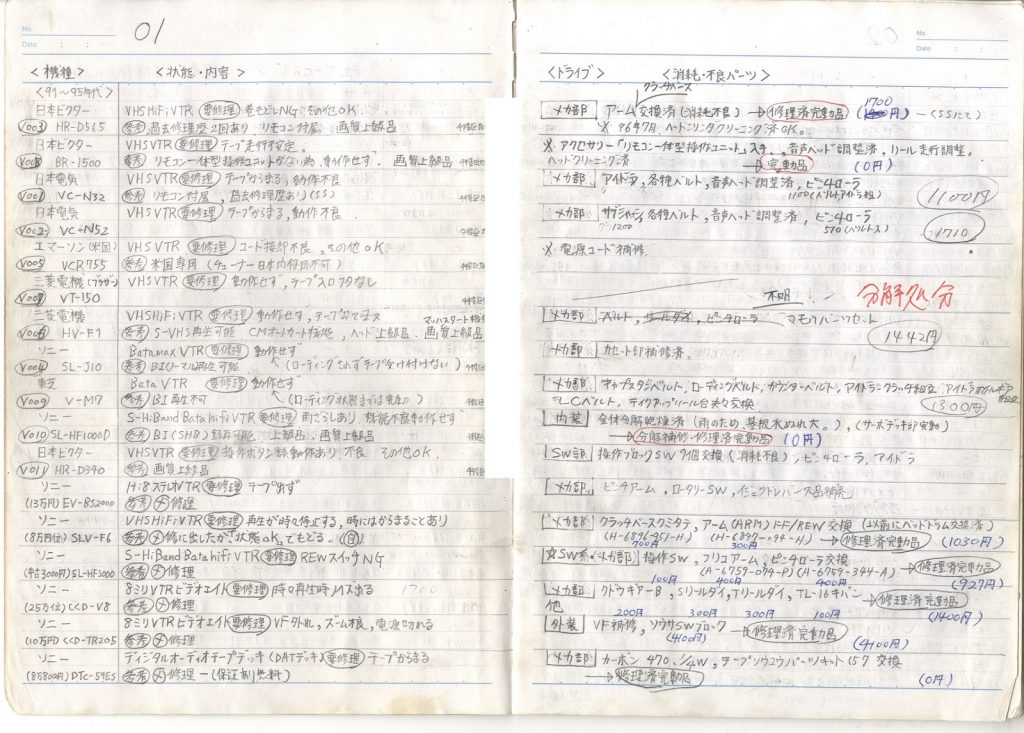 No.
Date
01
<機種> <状態・内容>
<91~95年代>
日本ビクター VHSHiFiVTR 要修理 巻もどしNG その他OK
V003 HR-D565 参考 過去修理歴2回あり リモコン付属 画質上級品
日本ビクター VHSVTR 要修理 テープ走行不安定.
V008 BR-1500 参考 リモコン一体型操作ユニットがない為、動作せず 画質上級品
日本電気 VHSVTR 要修理 テープからまる,動作不良
V001 VC-N32 参考 リモコン付属,過去修理歴あり(SS)
日本電気 VHSVTR 要修理 テープからまる,動作不良
V002 VC-N52
エマーソン(米国) VHSVTR 要修理 コード接部不良、その他OK
V005 VCR755 参考 米国専用 (チューナー日本内使用不可)
三菱電機(ブラザー) VHSVTR 要修理 動作せず,テープ入口フタなし
VT-150
三菱電機 VHSHiFiVTR 要修理 動作せず,
V006 HV-F1 参考 S-VHS再生可能 CMオートカット機能,ヘッド上級品.画質上級品
ソニー Batamax VTR 要修理 動作せず
V004 SL-J10 参考 BIノーマル再生可能. (ローディングされずテープ受け付けない)
東芝 Bata VTR 要修理 動作せず
V009 V-M17 参考 BI再生不可 (ローディング状態までは異常なし)
ソニー S-HiBand BatahifiVTR 要修理 雨ざらしあり 機能不良動作せず
V010 SL-HF1000D 参考 BI(SHB)録再可能 上級品.画質上級品
日本ビクター VHSVTR 要修理 操作ボタン誤動作あり,不良 その他OK.
V011 HR-D340 参考 画質上級品
ソニー Hi8ステレオVTR 要修理 テープ出ず
(13万円) EV-BS2000 参考 〆修理
ソニー VHSHiFiVTR 要修理 再生が時々停止する,時にはからまることあり
(8万円位) SLV-F6 参考 〆修に出したが,状態OK,でもどる.
ソニー S-HiBand BatahifiVTR 要修理 REWスイッチNG
(中古3000円) SL-HF3000 参考 〆修理
ソニー 8ミリVTRビデオエイト 要修理 時々再生時ノイズ出る 1700
(25万位) CCD-V8 参考 〆修理
ソニー 8ミリVTRビデオエイト 要修理 VF外れ,ズーム不良,電源切れる
(10万円) CCD-TR205 参考 〆修理
ソニー ディジタルオーディオテープデッキ(DATデッキ) 要修理 テープからまる
(8万800円) DTC-59ES 参考 〆修理-(保証書有無料)
No.
Date
<ドライブ> <消耗・不良パーツ>
クラッチベース
1700
メカ部 アーム交換済(消耗不良)→修理済完動品 円)―(SSにて)
※ 96年7月 ヘッドシリンダクリーニング済OK。
※ アクセサリー「リモコン一体型操作ユニット」入手。、音声ヘッド調整済,リール走行調整。
ヘッドクリーニング済 →完動品 (0円)
メカ部 アイドラ,各種ベルト,音声ヘッド調整済,ピンチローラ
1100(ベルトアイドラ組) 1100円
メカ部 各種ベルト,音声ヘッド調整済,ピンチローラ
1200 510(ベルト) 1710
※ 電源コード補修.
不明 分解処分
メカ部 ベルト, ピンチローラ マモウパーツセット
1442円
メカ部 カセット部補修済.
メカ部 キャプスタンベルト,ローディングベルト,カウンターベルト,アイドラクラッチ組立
LCベルト,テイクアップリール台英々交換. 1300円
内装 全体分解乾燥済(雨のため、基板水ぬれた。),(サーボデッキ部実動)
→分解補修・修理済完動品 (0円)
SW部 操作ブロックSW9個交換(消耗不良),ピンチローラ,アイドラ
メカ部 ピンチアーム,ロータリーSW,
メカ部 クラッチベースクミタテ,アーム(ARM)FF/REW交換(以前にヘッドドラム交換済)
(H-6896-451-H) (H-6897-094-H) →修理済完動品 (1030円)
700円 300円
☆SW系・メカ部 操作SW,フリコアーム,ピンチローラ交換
(A-6759-074-P)(A-6759-344-A) →修理済完動品
100円 400円 400円 (927円)
メカ部 クドウギアーB,Sリールダイ,Tリールダイ,TL-16キバン→修理済完動品
他 200円 300円 300円 100円 (1400円)
外装 VF補修,ソウサSWブロック→修理済完動品
(4100円) (4100円)
メカ部 カーボン 470. 1/4W,テープソウコウパーツキット157 交換
→修理済完動品 (0円)